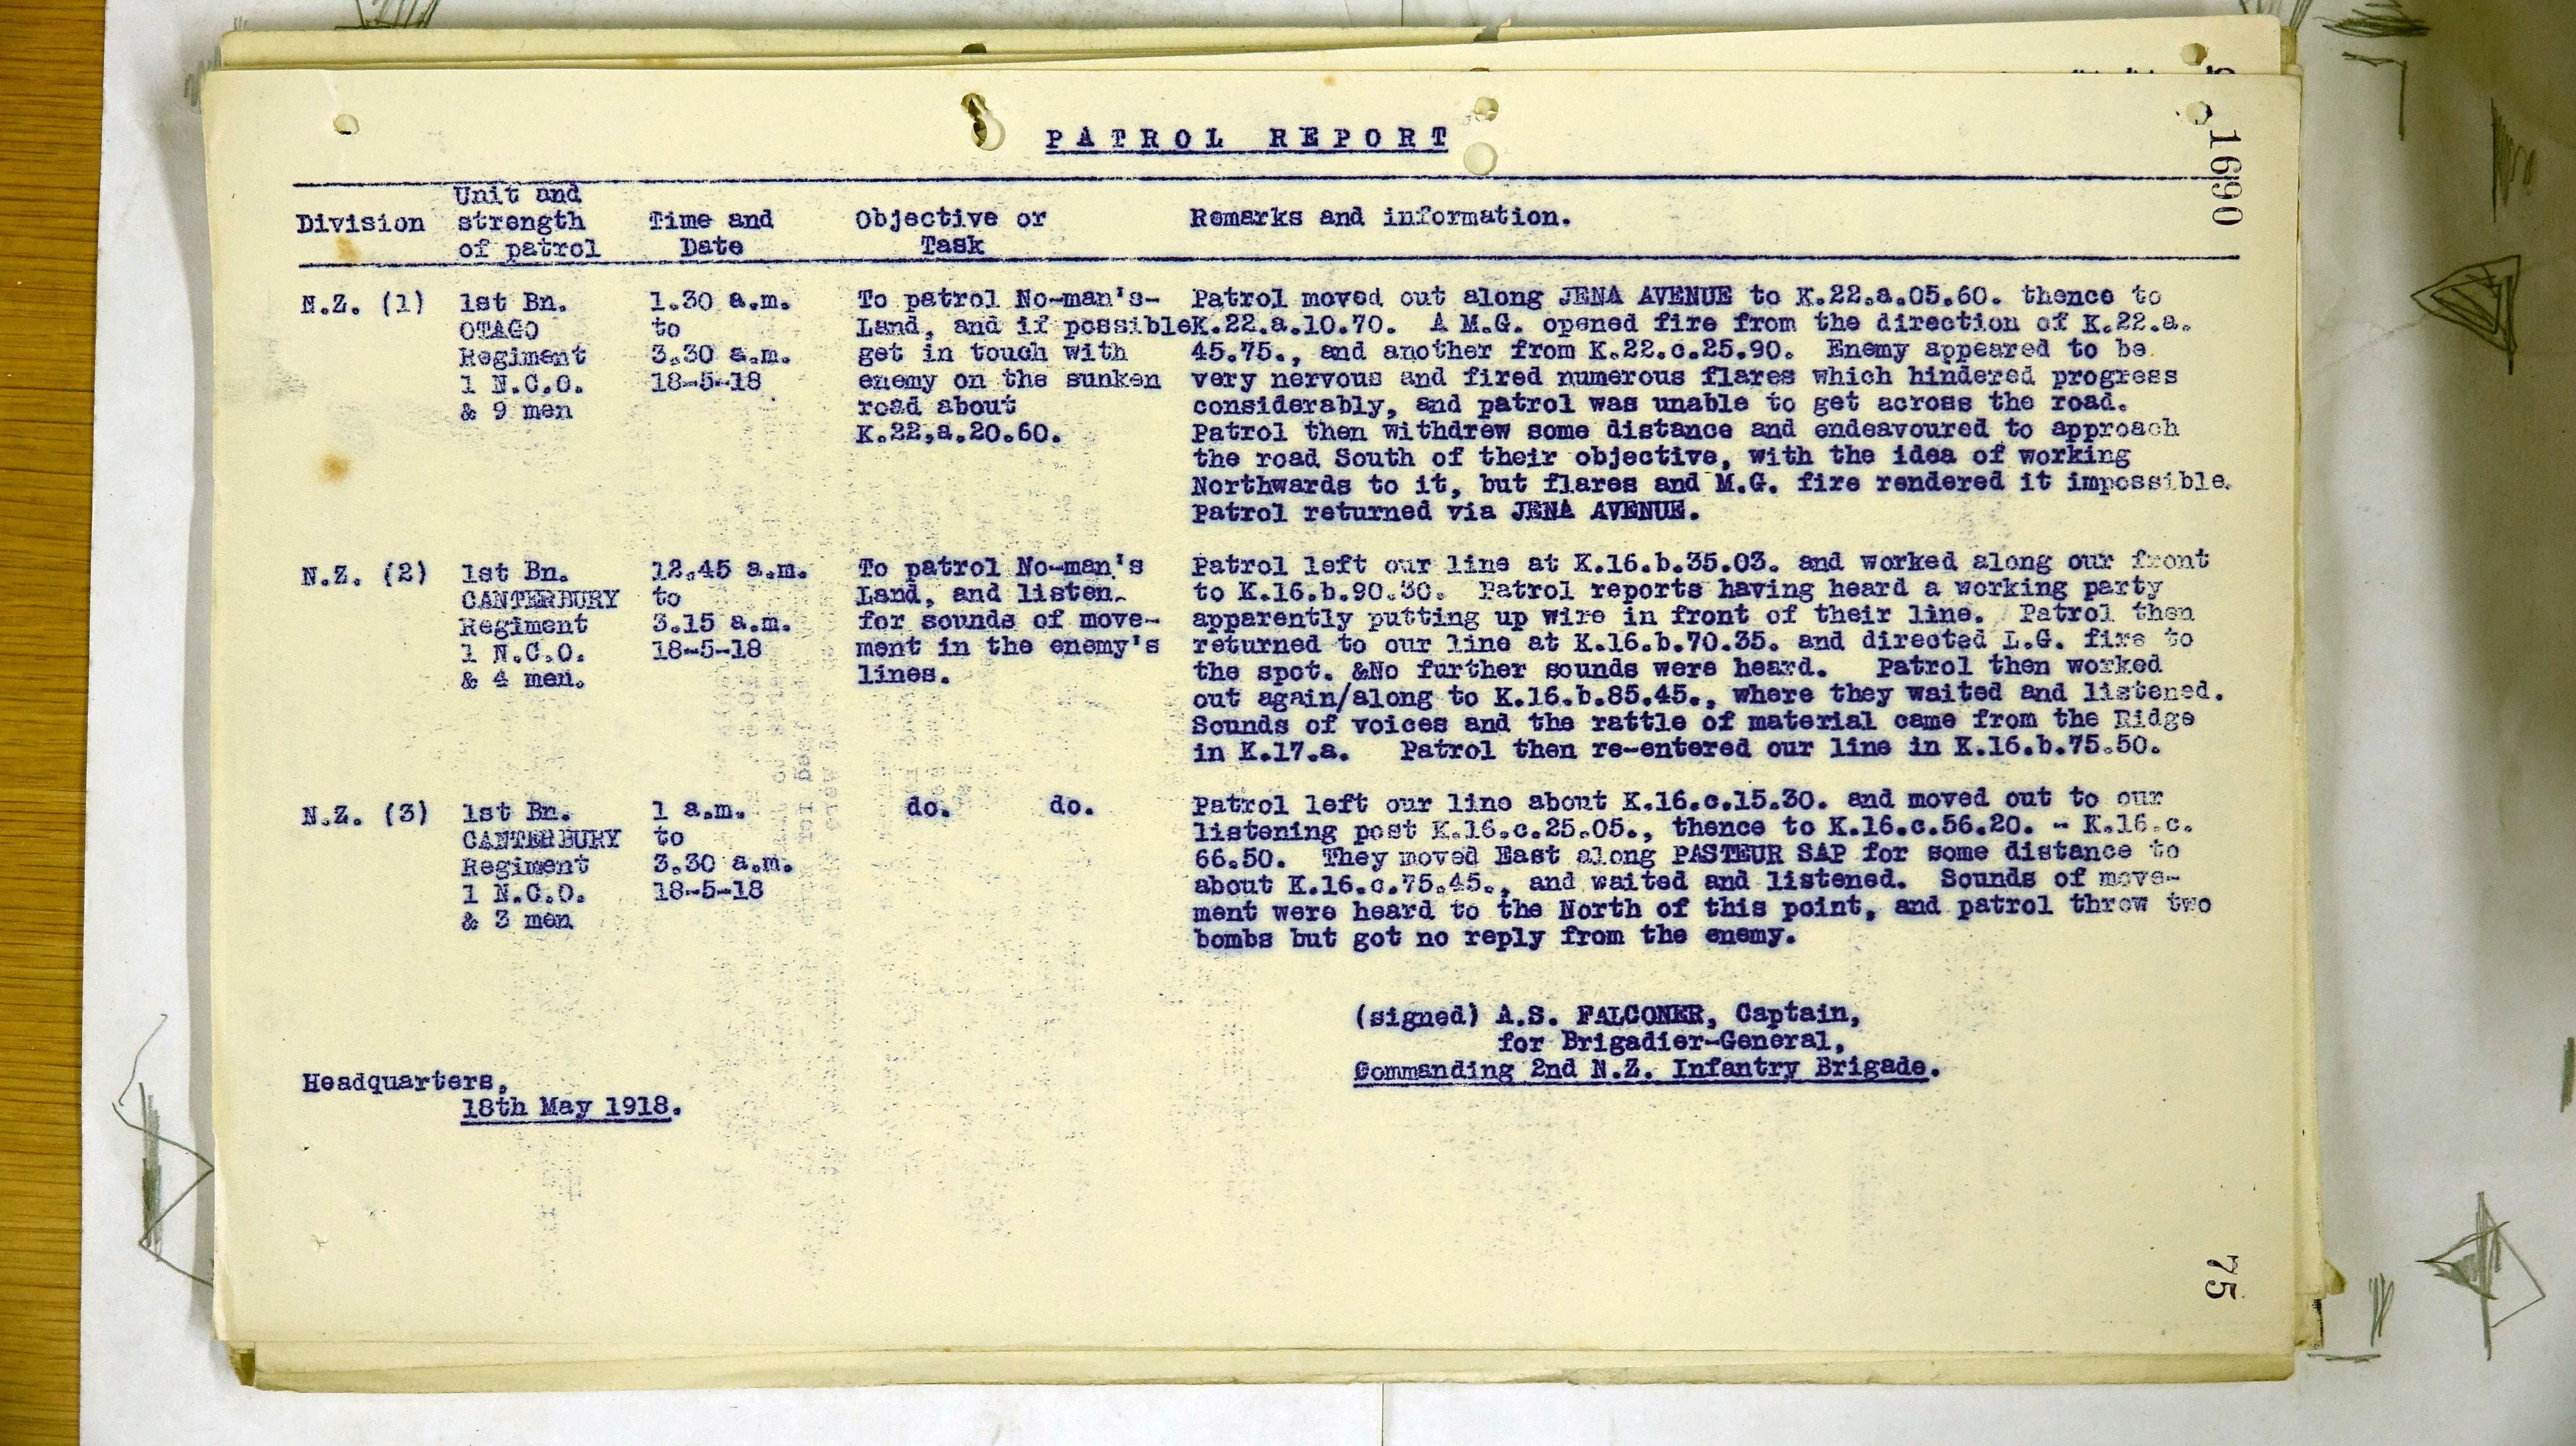 PATROL REPORT
1690
Division
Unit and
strength
of patrol
Time and
Date
Objective or
Task
Remarks and information.
N.Z. (1)
1st Bn.
OTAGO
Regiment
1 N.C.O.
& 9 men
1.30 a.m.
to
3.30 a.m.
18-5-18
To patrol No-man's-
Land, and if possible
get in touch with
enemy on the sunken
road about
K.22,a.20.60.
Patrol moved out along JENA AVENUE to K.22.a.05.60. thence to
K.22.a.10.70. A M.G. opened fire from the direction of K.22.a.
45.75., and another from K.22.c.25.90. Enemy appeared to be
very nervous and fired numerous flares which hindered progress
considerably, and patrol was unable to get across the road.
Patrol then withdrew some distance and endeavoured to approach
the road South of their objective, with the idea of working
Northwards to it, but flares and M.G. fire rendered it impossible.
Patrol returned via JENA AVENUE.
N.Z. (2)
1st Bn.
CANTERBURY
Regiment
1 N.C.O.
& 4 men.
12.45 a.m.
to
3.15 a.m.
18-5-18
To patrol No-man's
Land, and listen
for sounds of move-
ment in the enemy's
lines.
Patrol left our line at K.16.b.35.03. and worked along our front
to K.16.b.90.30. Patrol reports having heard a working party
apparently putting up wire in front of their line. Patrol then
returned to our line at K.16.b.70.35. and directed L.G. fire to
the spot. &No further sounds were heard. Patrol then worked
out again/along to K.16.b.85.45., where they waited and listened.
Sounds of voices and the rattle of material came from the Ridge
in K.17.a. Patrol then re-entered our line in K.16.b.75.50.
N.Z. (3)
1st Bn.
CANTERBURY
Regiment
1 N.C.O.
& 3 men
1 a.m.
to
3.30 a.m.
18-5-18
do. do.
Patrol left our line about K.16.c.15.30. and moved out to our
listening post K.16.c.25.05., thence to K.16.c.56.20. - K.16.c.
66.50. They moved East along PASTEUR SAP for some distance to
about K.16.c.75.45., and waited and listened. Sounds of move-
ment were heard to the North of this point, and patrol threw two
bombs but got no reply from the enemy.
(signed) A.S. FALCONER, Captain,
for Brigadier-General,
Commanding 2nd N.Z. Infantry Brigade.
Headquarters,
18th May 1918.
75